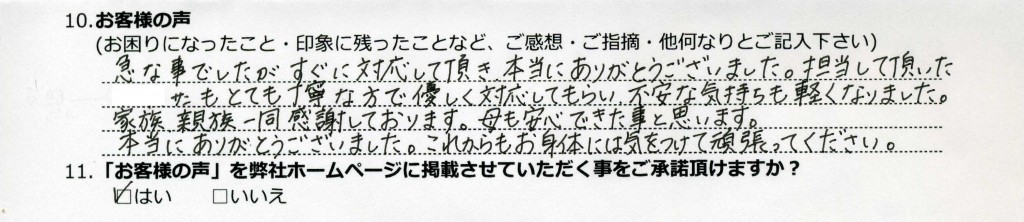 10.お客様の声
(お困りになったこと・印象に残ったことなど、ご感想・ご指摘・他何なりとご記入下さい)
急な事でしたが すぐに対応して頂き 本当にありがとうございました。担当して頂いた
もとても丁寧な方で優しく対応してもらい 不安な気持ちも軽くなりました。
家族 親族一同感謝しております。母も安心できた事と思います。
本当にありがとうございました。これからもお身体には気をつけて頑張ってください。
11.「お客様の声」を弊社ホームページに掲載させていただく事をご承諾頂けますか？
☑はい □いいえ